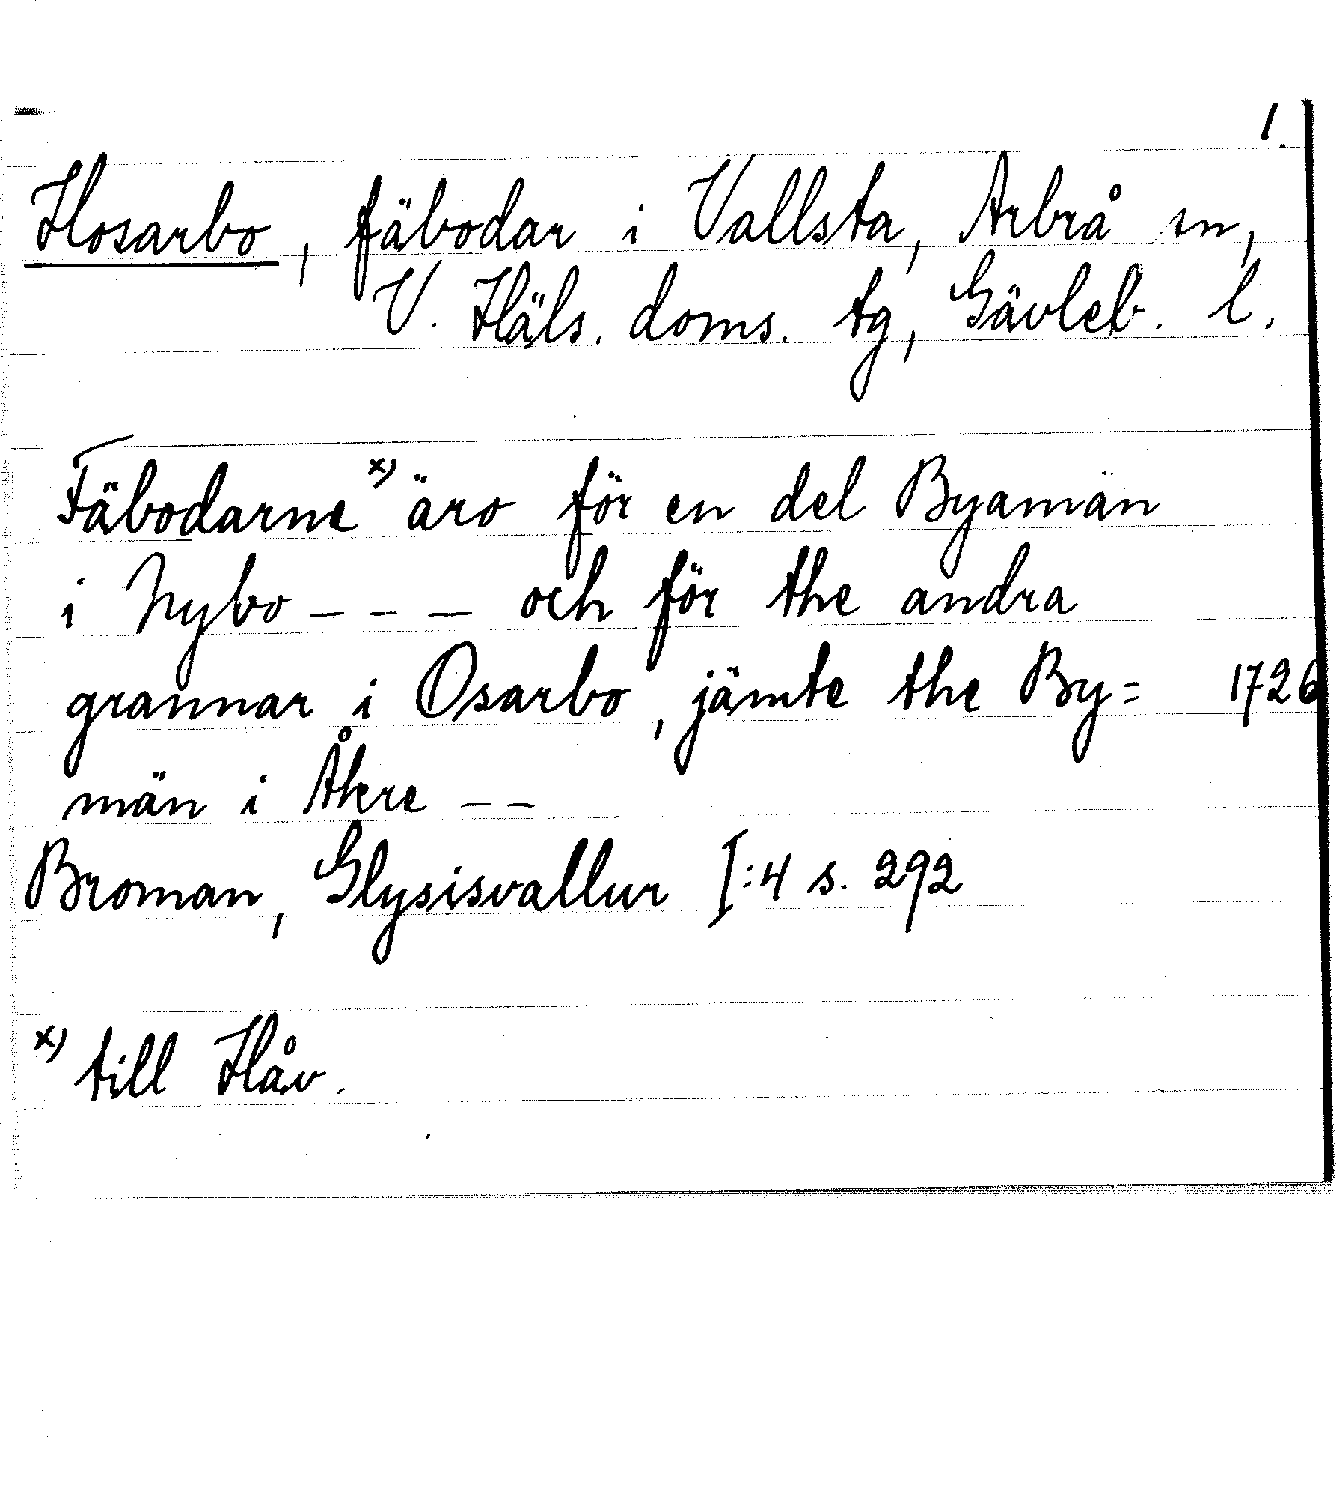 1.
Hosarbo, fäbodar i Vallsta, Arbrå sn,
V. Häls. doms. tg, Gävleb. l.
Fäbodarne x) äro för en del Byamän
i Nybo - - - och för the andra
grannar i Osarbo, jämte the By= 1726
män i Åkre - -
Broman, Glysisvallur I:4 s. 292
x) till Håv.